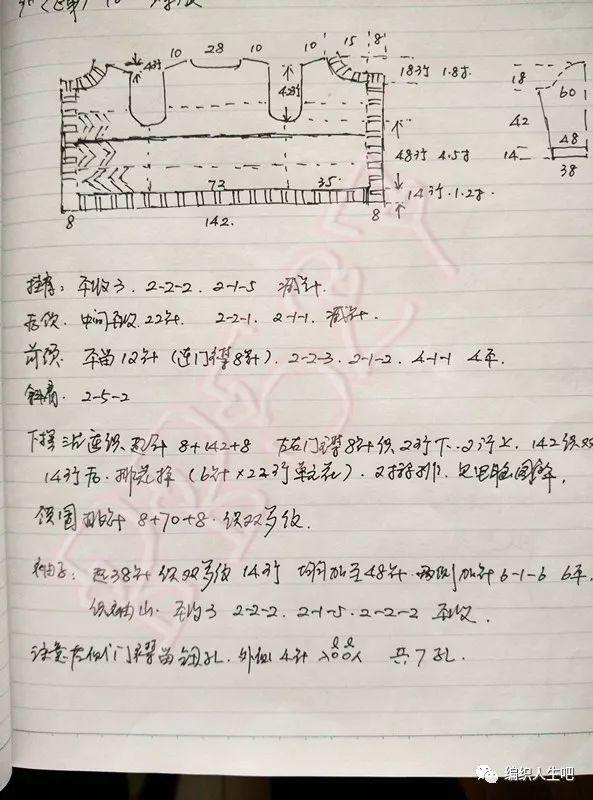 10
10 28 10 10 15 8
4行 42行
18行 1.8寸
48行 4.5寸
14行 1.2寸
72 35
8 142. 8
18 60
42
14 48
38
挂肩: 平收3. 2-2-2. 2-1-5 减针.
后领. 中间平收22针. 2-2-1. 2-1-1. 减针.
前领. 平留12针 (连门襟8针). 2-2-3. 2-1-2. 4-1-1 4平.
斜肩. 2-5-2
下摆三片连织. 起针 8+142+8 左右门襟8针织 2行下. 2行上. 142织双
14行后. 排花样 (6针×22行单元花). 对称排. 见电脑图解.
领围挑针 8+70+8. 织双罗纹.
袖子: 起38针织双罗纹14行 均加至48针. 两侧加针 6-1-6 6平.
织袖山. 平收3 2-2-2. 2-1-5. 2-2-2 平收.
注意左侧门襟留钮孔. 外侧4针 共7孔.
编织人生吧